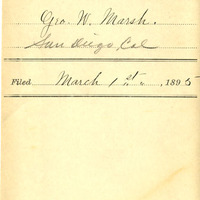 Geo. W. Marsh.
San Diego, Cal
Filed March 1st, 1895